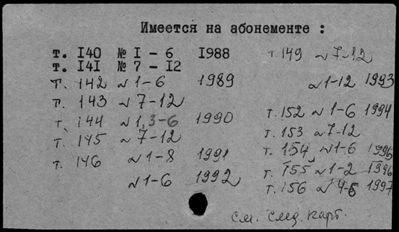 Имеется на абонементе :
т. I40 № I - 6 I988
т. I4I № 7 - I2
т. 142 №1-6 1989
т. 143 №7-12
т. 144 №1,3-6 1990
т. 145 №7-12
т. 146 №1-8 1991
№1-6 1992
т. 149 №7-12
№1-12 1993
т. 152 №1-6 1994
т. 153 №7-12
т. 154 №1-6 1995
т. 155 №1-2 1996
т. 156 №4-6 1997
см. след. карт.